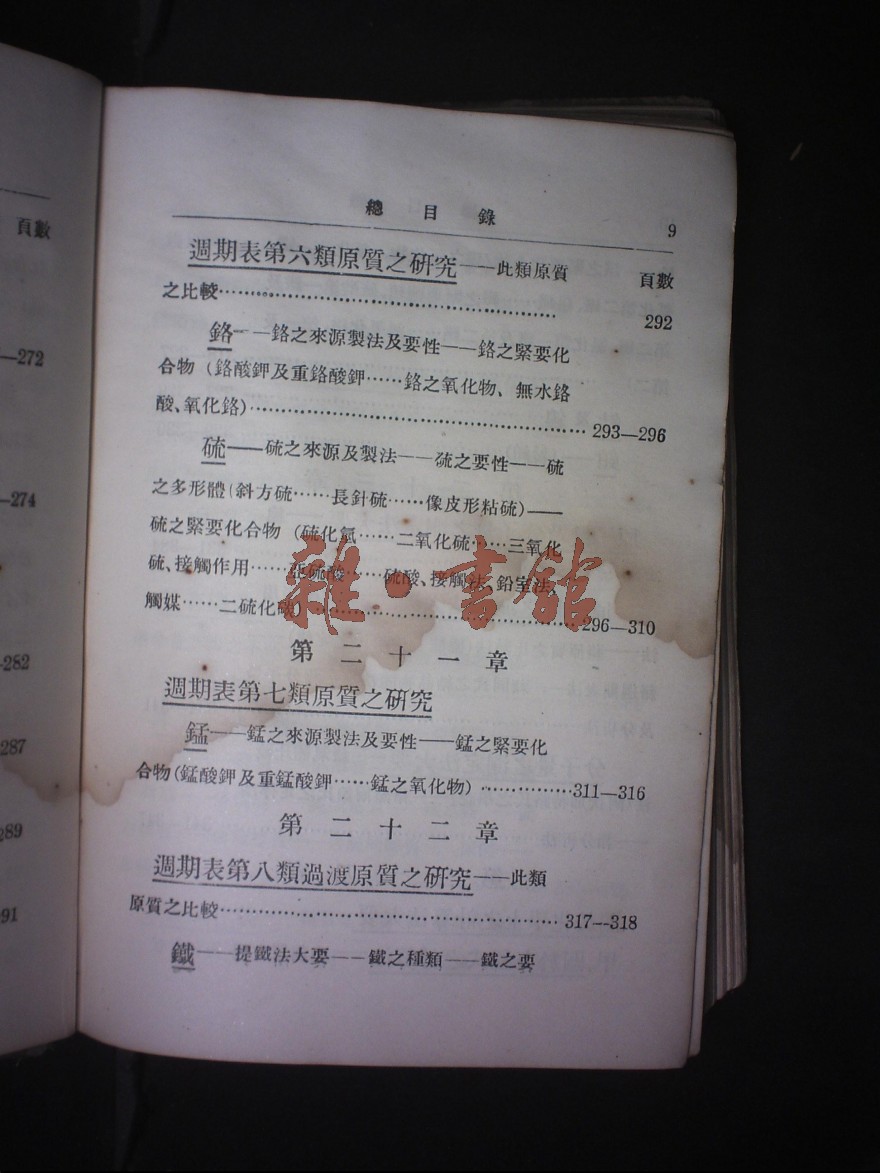 頁數
—272
—274
-282
-287
289
91
總目錄 9
週期表第六類原質之研究——此類原質 頁數
之比較…………………………………… 292
鉻——鉻之來源製法及要性——鉻之緊要化
合物（鉻酸鉀及重鉻酸鉀……鉻之氧化物、無水鉻
酸、氧化鉻）…………………………………293—296
硫——硫之來源及製法——硫之要性——硫
之多形體（斜方硫……長針硫……像皮形粘硫）——
硫之緊要化合物（硫化氫……二氧化硫……三氧化
硫、接觸作用……亞硫酸……硫酸、接觸法、鉛室法、
觸媒……二硫化碳）…………………………296—310
雜·書館
第二十一章
週期表第七類原質之研究
錳——錳之來源製法及要性——錳之緊要化
合物（錳酸鉀及重錳酸鉀……錳之氧化物）……………311—316
第二十二章
週期表第八類過渡原質之研究——此類
原質之比較…………………………………317—318
鐵——提鐵法大要——鐵之種類——鐵之要